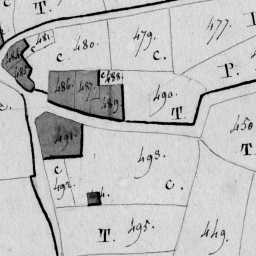 T.
481.
c.
480.
479.
c.
477.
T.
P.
486.
487.
c.
488.
489.
490.
T.
491.
450
T.
493.
c.
c
492.
T.
495.
449.